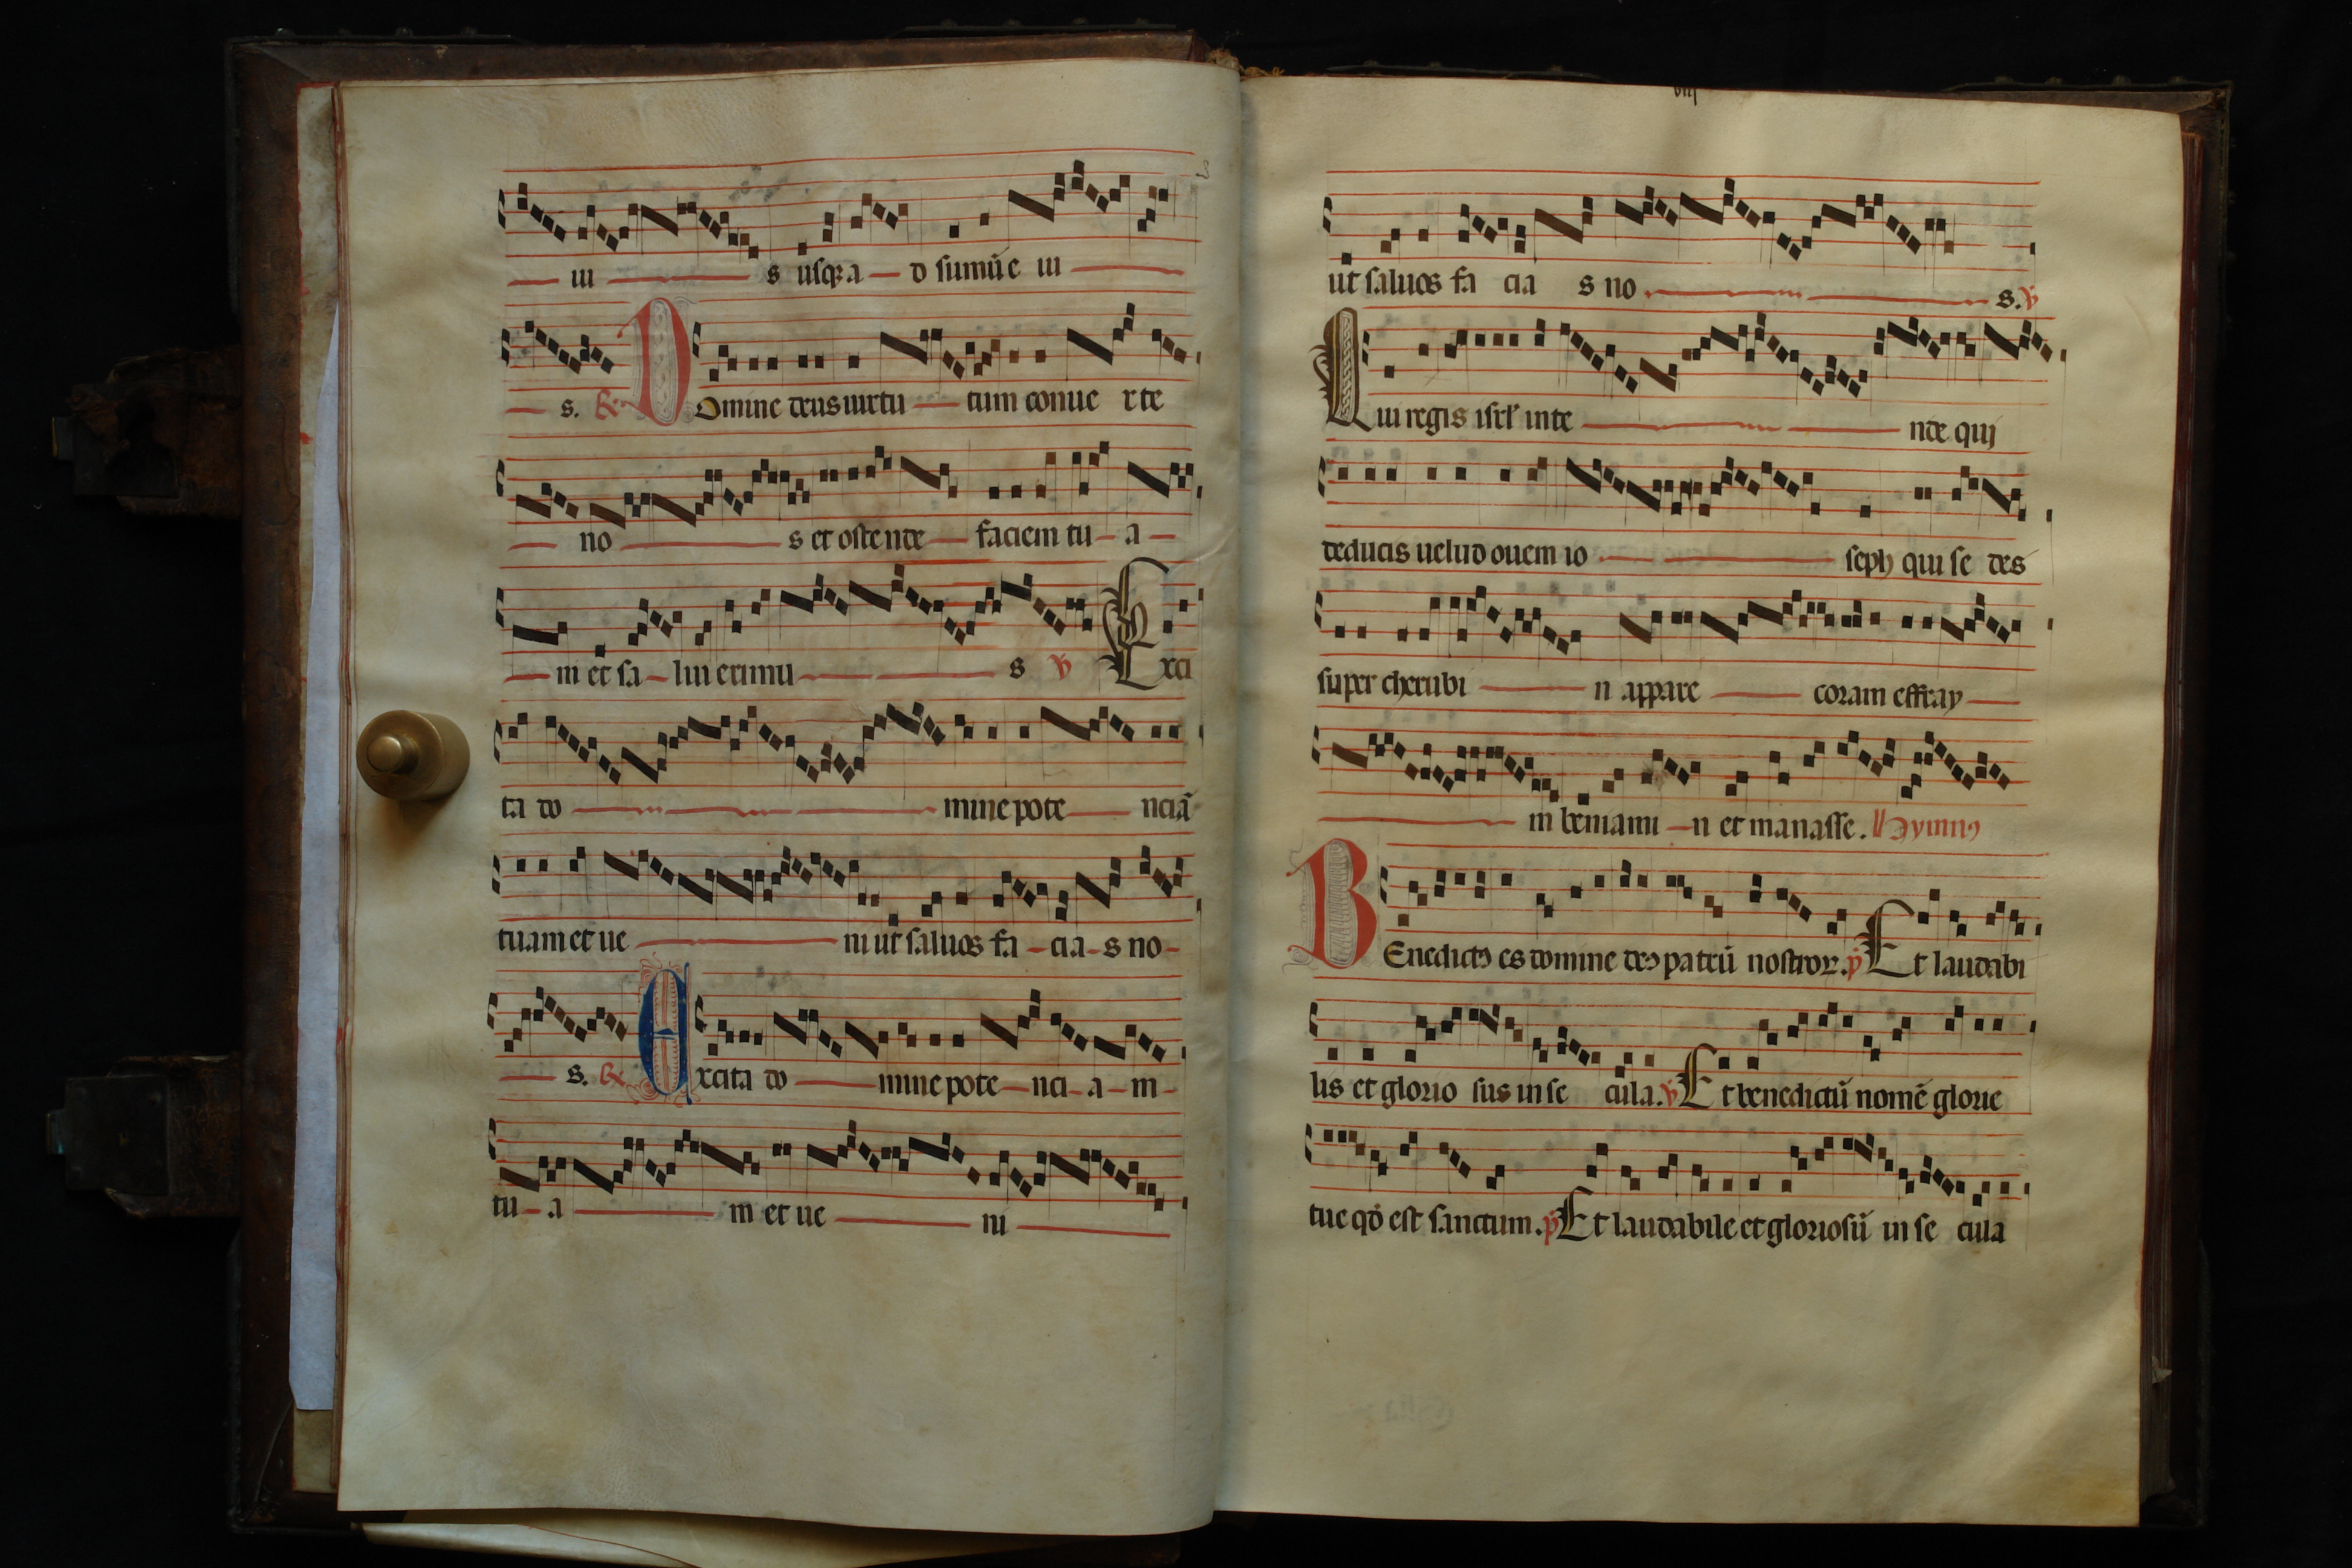 ui s usqꝫ a d sumū e iu
s. ℟ Domine deus uirtu tum conue rte
no s et ostende faciem tu a
m et sa lui erimu s ℣ Exci
ta do mine pote nciā
tuam et ue ni ut saluos fa cia s no
s. ℟ Excita do mine pote nci a m
tu a m et ue ni
viij
ut saluos fa cia s no s. ℣
Qui regis isrl' inte nde qui
deducis uelud ouem io seph qui se des
super cherubi n appare coram effray
m beniami n et manasse. Hymnꝯ
Benedictꝯ es domine deꝯ patrū nostroꝝ. p Et laudabi
lis et glorio sus in se cula. ℣ Et benedictū nomē glorie
tue qđ est sanctum. p Et laudabile et gloriosū in se cula